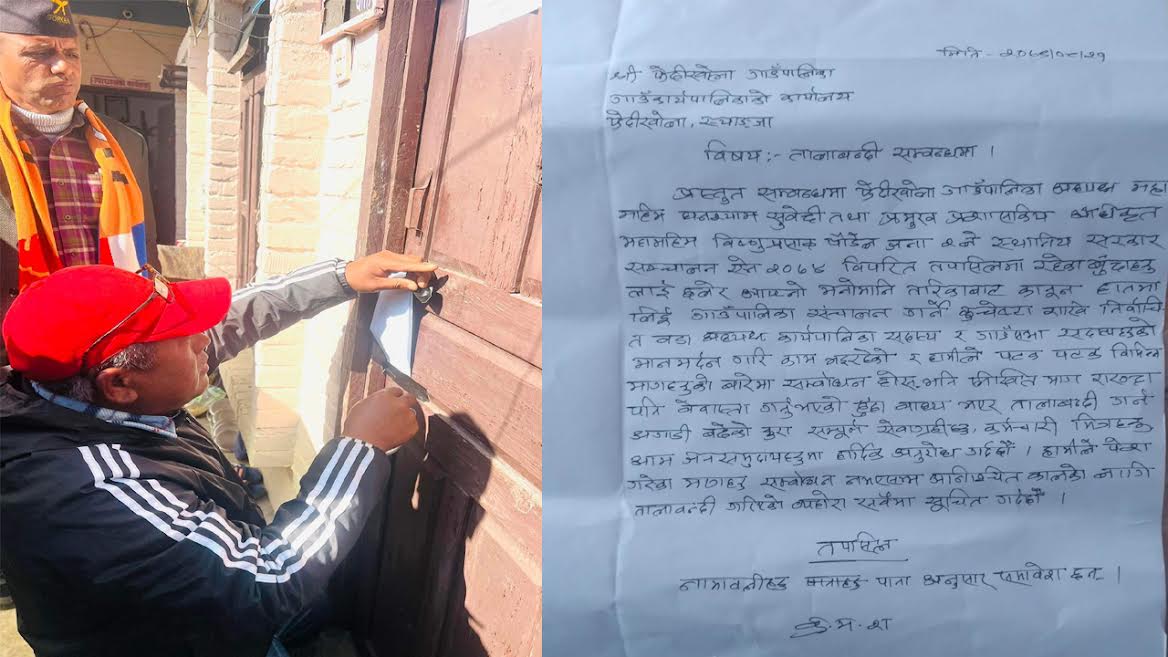 मिति - २०७९/०८/२१
श्री फेदीखोला गाउँपालिका
गाउँकार्यपालिकाको कार्यालय
फेदीखोला, स्याङ्जा
विषय :- तालाबन्दी सम्बन्धमा ।
प्रस्तुत सम्बन्धमा फेदीखोला गाउँपालिका अध्यक्ष महा
महिम घनश्याम सुवेदी तथा प्रमुख प्रशासकिय अधिकृत
महामहिम विष्णुप्रसाद पौडेल जना २ ले स्थानिय सरकार
सञ्चालन ऐन २०७४ विपरित तपासिलमा रहेका बुँदाहरु
लाई छलेर आफ्नो मनोमानि तरिकाबाट कानून हातमा
लिई गाउँपालिका संचालन गर्ने राखि निर्वाचि
त वडा अध्यक्ष कार्यपालिका सदस्य र गाउँसभा सदस्यहरुको
मानमर्दन गरि काम भइरहेको र हामीले पटक पटक विभिन्न
मागहरुको बारेमा सम्बोधन होस् भनि लिखित माग राख्दा
पनि वेवास्ता गर्नुभएको हुँदा बाध्य भएर तालाबन्दी गर्न
अगाडी बढेको कुरा सम्पूर्ण सेवाग्राही, कर्मचारी मित्रहरु
आम जनसमुदायहरुमा हार्दिक अनुरोध गर्दछौं । हामीले पेश
गरेका मागहरु सम्बोधन नभएसम्म अनिश्चित कालको लागि
तालाबन्दी गरिएको व्यहोरा सबैमा सूचित गर्दछौं ।
तपासिल
नामावलीहरु पाना अनुसार समावेश छन् ।